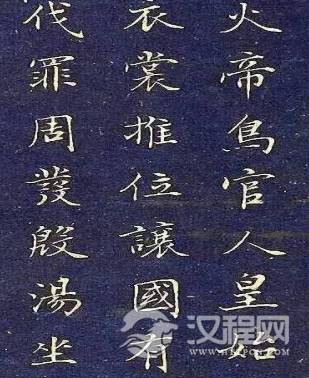 火帝鳥官人皇始
衣裳推位讓國有
伐罪周發殷湯坐
汉程网